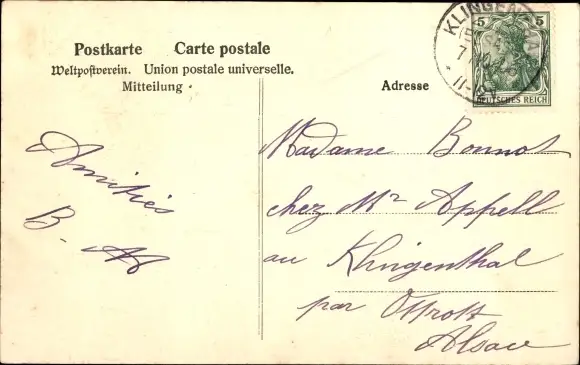 Postkarte Carte postale
Weltpostverein. Union postale universelle.
Mitteilung
Adresse
KLINGENTHAL
5 5
DEUTSCHES REICH
Amitiés
B. 
Madame Bonnot
chez Mr Appell
au Klingenthal
par Ottrott
Alsace